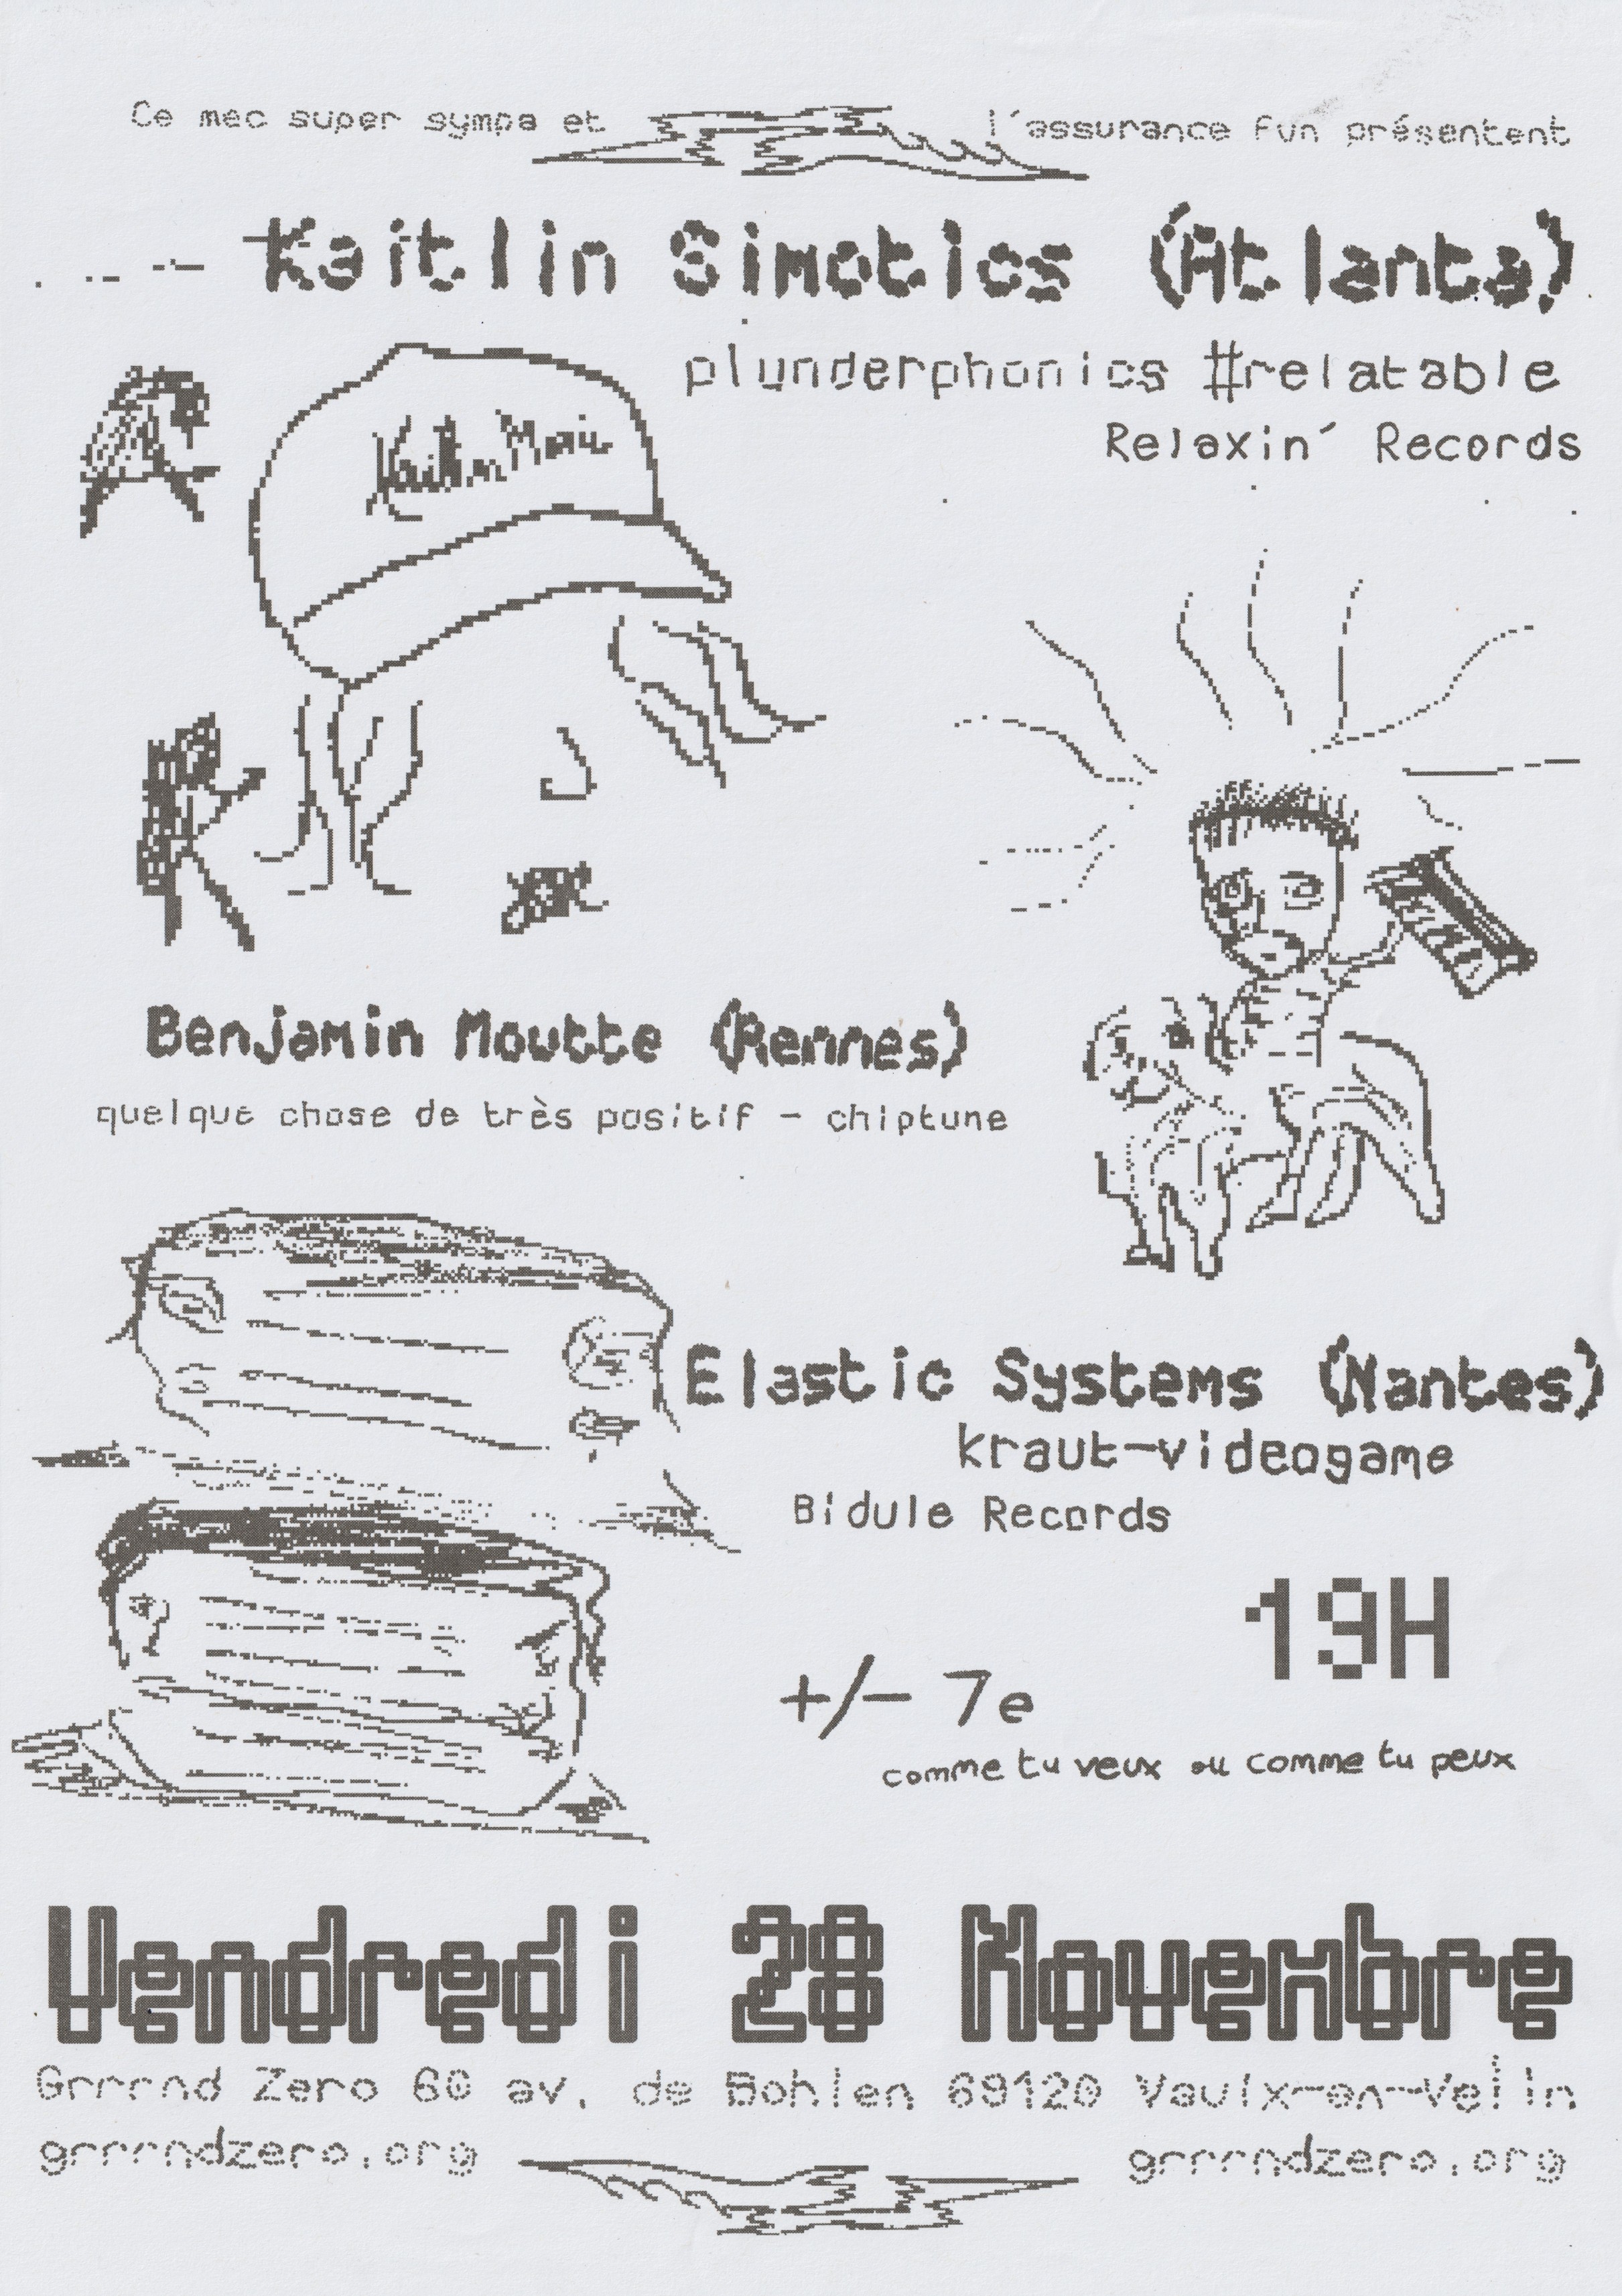 Ce mec super sympa et l'assurance fun présentent
Kaitlin Simotics (Atlanta)
plunderphonics #relatable
Relaxin' Records
Benjamin Moutte (Rennes)
quelque chose de très positif - chiptune
Elastic Systems (Nantes)
kraut-videogame
Bidule Records
19H
+/- 7e
comme tu veux ou comme tu peux
Vendredi 28 Novembre
Grrrnd Zero 60 av. de Bohlen 69120 Vaulx-en-Velin
grrrndzero.org
grrrndzero.org